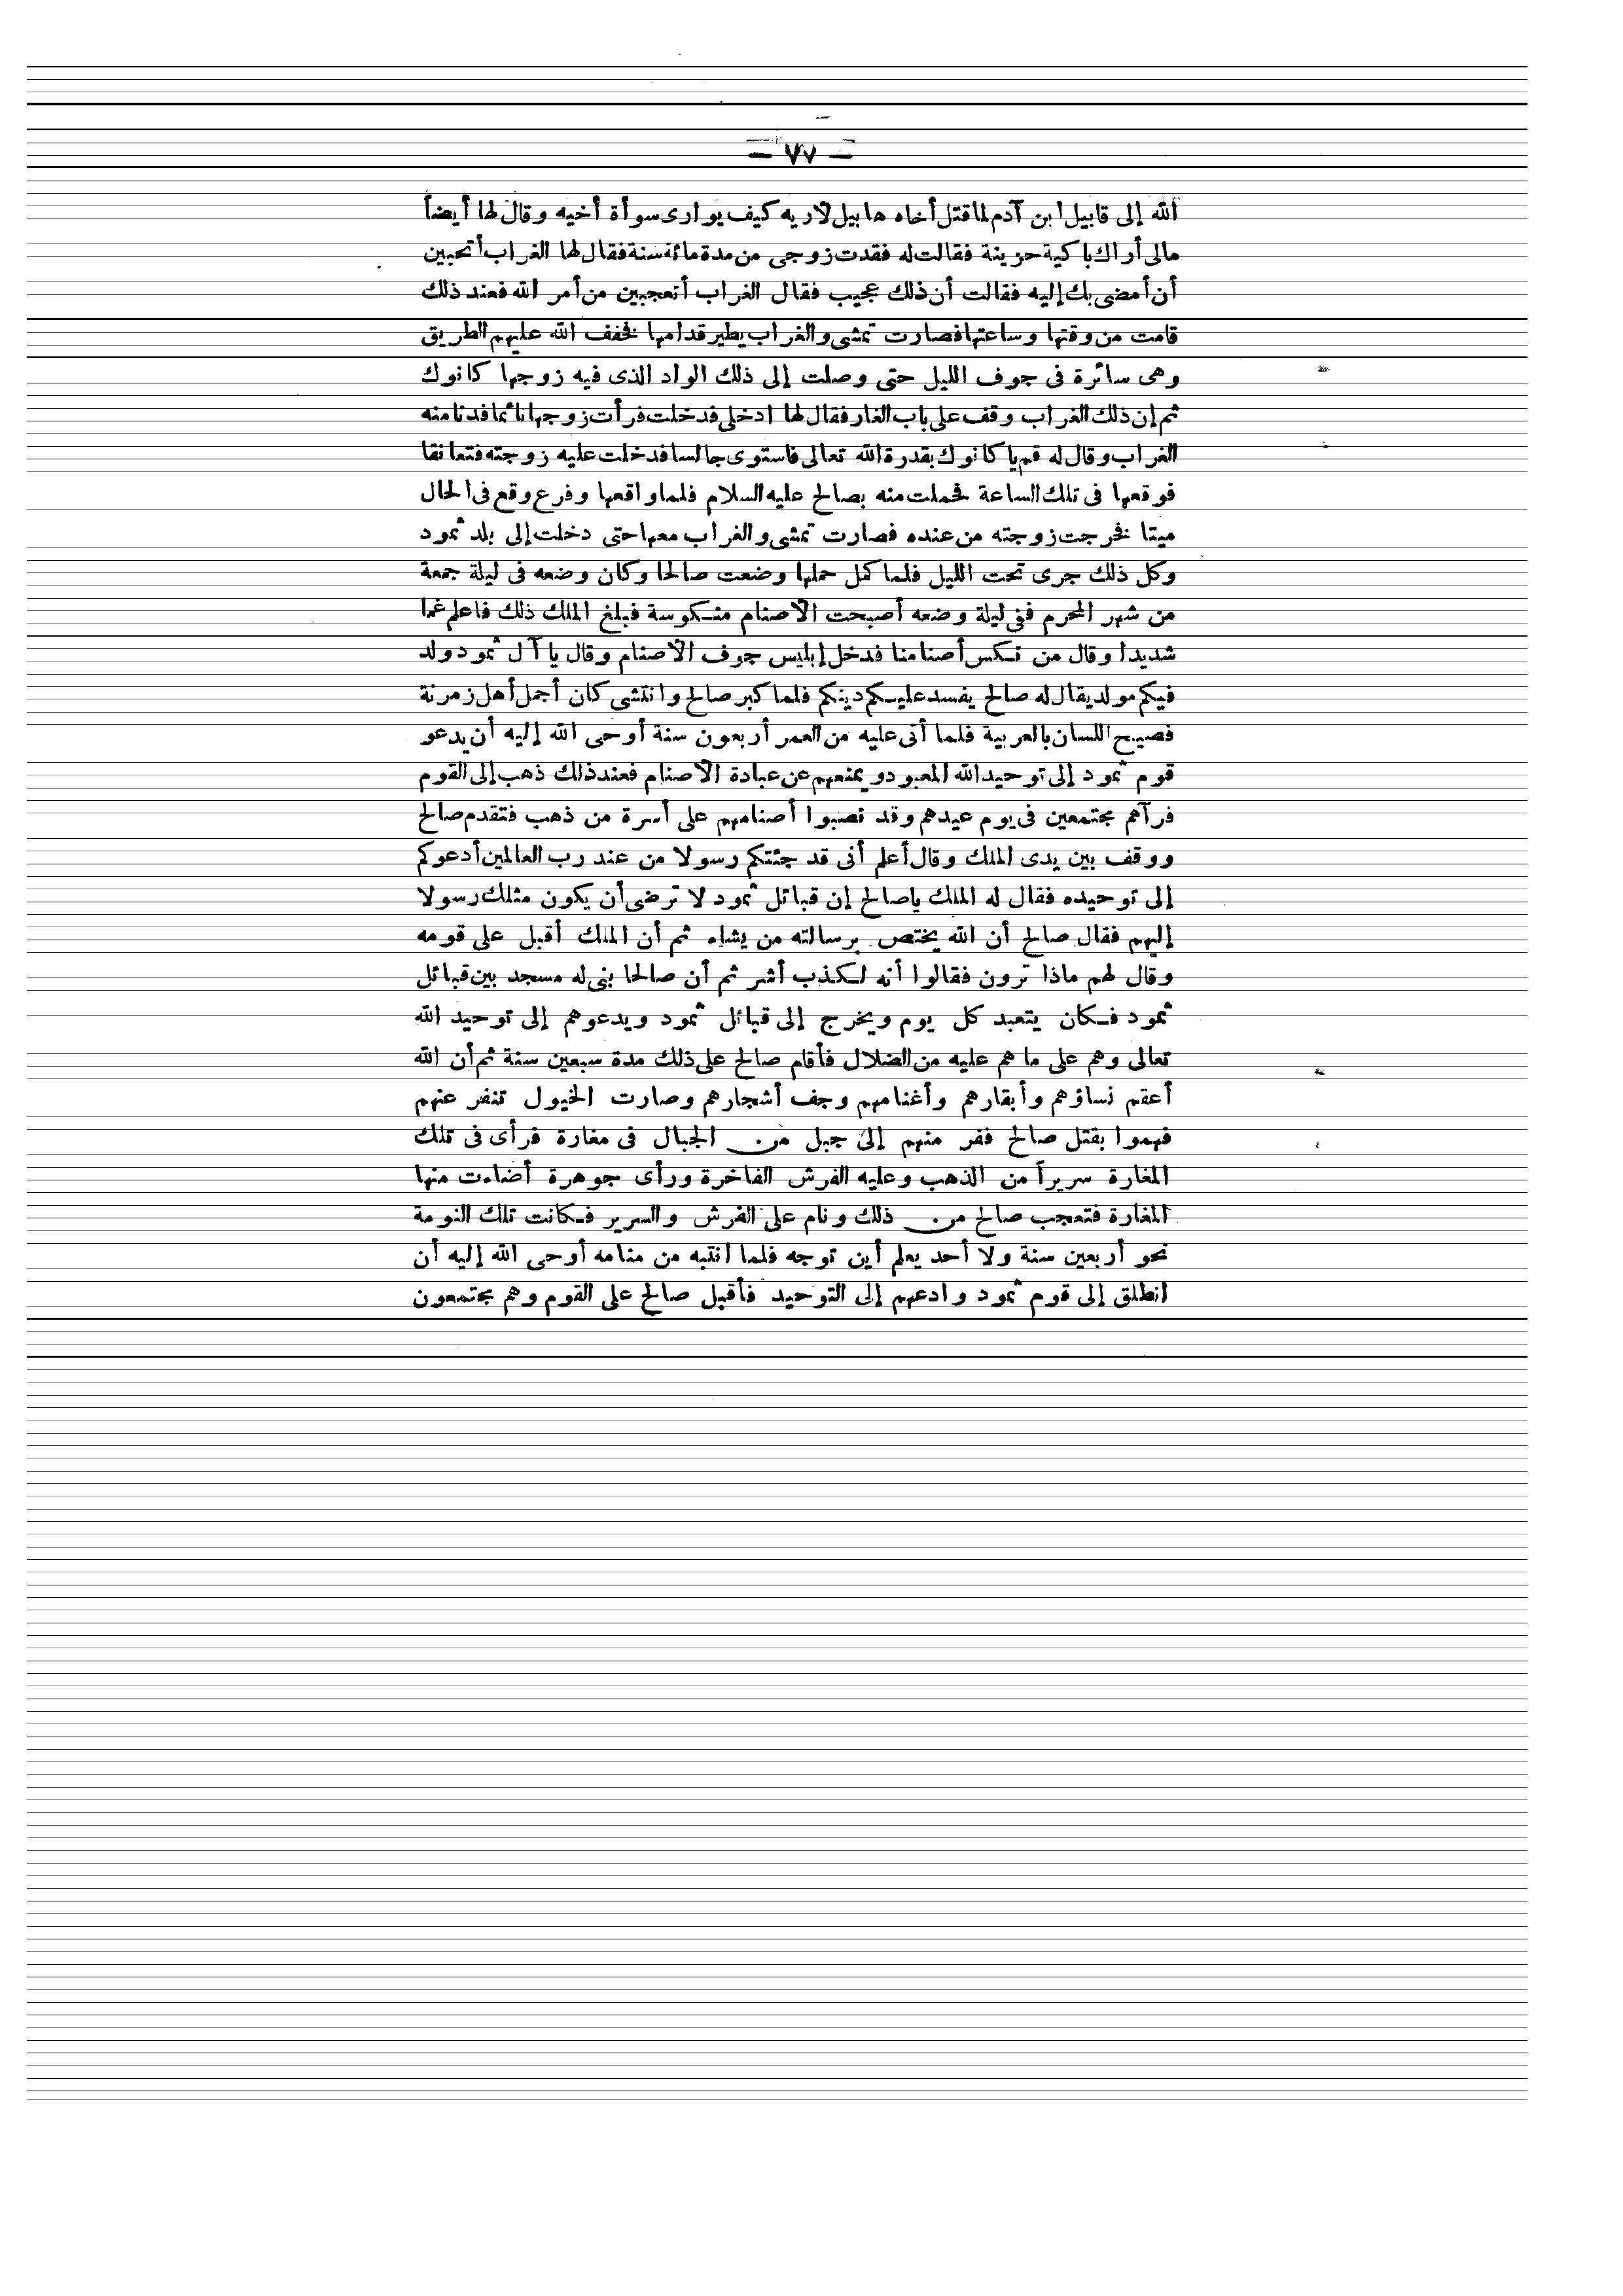 — ٧٧ —
الله إلى قابيل ابن آدم لما قتل أخاه هابيل لاريه كيف يوارى سوأة أخيه وقال لها أيضاً
مالى أراك باكية حزينة فقالت له فقدت زوجى من مدة مائة سنة فقال لها الغراب أتحبين
أن أمضى بك إليه فقالت أن ذلك عجيب فقال الغراب أتعجبين من أمر الله فعند ذلك
قامت من وقتها وساعتها فصارت تمشى والغراب يطير قدامها فخفف الله عليهم الطريق
وهى سائرة فى جوف الليل حتى وصلت إلى ذلك الواد الذى فيه زوجها كانوك
ثم إن ذلك الغراب وقف على باب الغار فقال لها ادخلى فدخلت فرأت زوجها نائما فدنا منه
الغراب وقال له قم يا كانوك بقدرة الله تعالى فاستوى جالسا فدخلت عليه زوجته فتعانقا
فوقعها فى تلك الساعة فحملت منه بصالح عليه السلام فلما واقعها وفرع وقع فى الحال
ميتا فخرجت زوجته من عنده فصارت تمشى والغراب معها حتى دخلت إلى بلد ثمود
وكل ذلك جرى تحت الليل فلما كمل حملها وضعت صالحا وكان وضعه فى ليلة جمعة
من شهر المحرم ففى ليلة وضعه أصبحت الأصنام منكوسة فبلغ الملك ذلك فاعلم غما
شديدا وقال من نكس أصنامنا فدخل إبليس جوف الأصنام وقال يا آل ثمود ولد
فيكم مولد يقال له صالح يفسد عليكم دينكم فلما كبر صالح وانتشى كان أجمل أهل زمرنة
فصيح اللسان بالعربية فلما أتى عليه من العمر أربعون سنة أوحى الله إليه أن يدعو
قوم ثمود إلى توحيد الله المعبود ويمنعهم عن عبادة الأصنام فعند ذلك ذهب إلى القوم
فرآهم مجتمعين فى يوم عيدهم وقد نصبوا أصنامهم على أسرة من ذهب فتقدم صالح
ووقف بين يدى الملك وقال أعلم أنى قد جئتكم رسولا من عند رب العالمين أدعوكم
إلى توحيده فقال له الملك ياصالح إن قبائل ثمود لا ترضى أن يكون مثلك رسولا
إليهم فقال صالح أن الله يختص برسالته من يشاء ثم أن الملك أقبل على قومه
وقال لهم ماذا ترون فقالوا أنه لكذب أشر ثم أن صالحا بنى له مسجد بين قبائل
ثمود فكان يتعبد كل يوم ويخرج إلى قبائل ثمود ويدعوهم إلى توحيد الله
تعالى وهم على ما هم عليه من الضلال فأقام صالح على ذلك مدة سبعين سنة ثم أن الله
أعقم نساؤهم وأبقارهم وأغنامهم وجف أشجارهم وصارت الخيول تنفر عنهم
فهموا بقتل صالح ففر منهم إلى جبل من الجبال فى مغارة فرأى فى تلك
المغارة سريراً من الذهب وعليه الفرش الفاخرة ورأى جوهرة أضاءت منها
المغارة فتعجب صالح من ذلك ونام على الفرش والسرير فكانت تلك النومة
نحو أربعين سنة ولا أحد يعلم أين توجه فلما انتبه من منامه أوحى الله إليه أن
انطلق إلى قوم ثمود وادعهم إلى التوحيد فأقبل صالح على القوم وهم مجتمعون